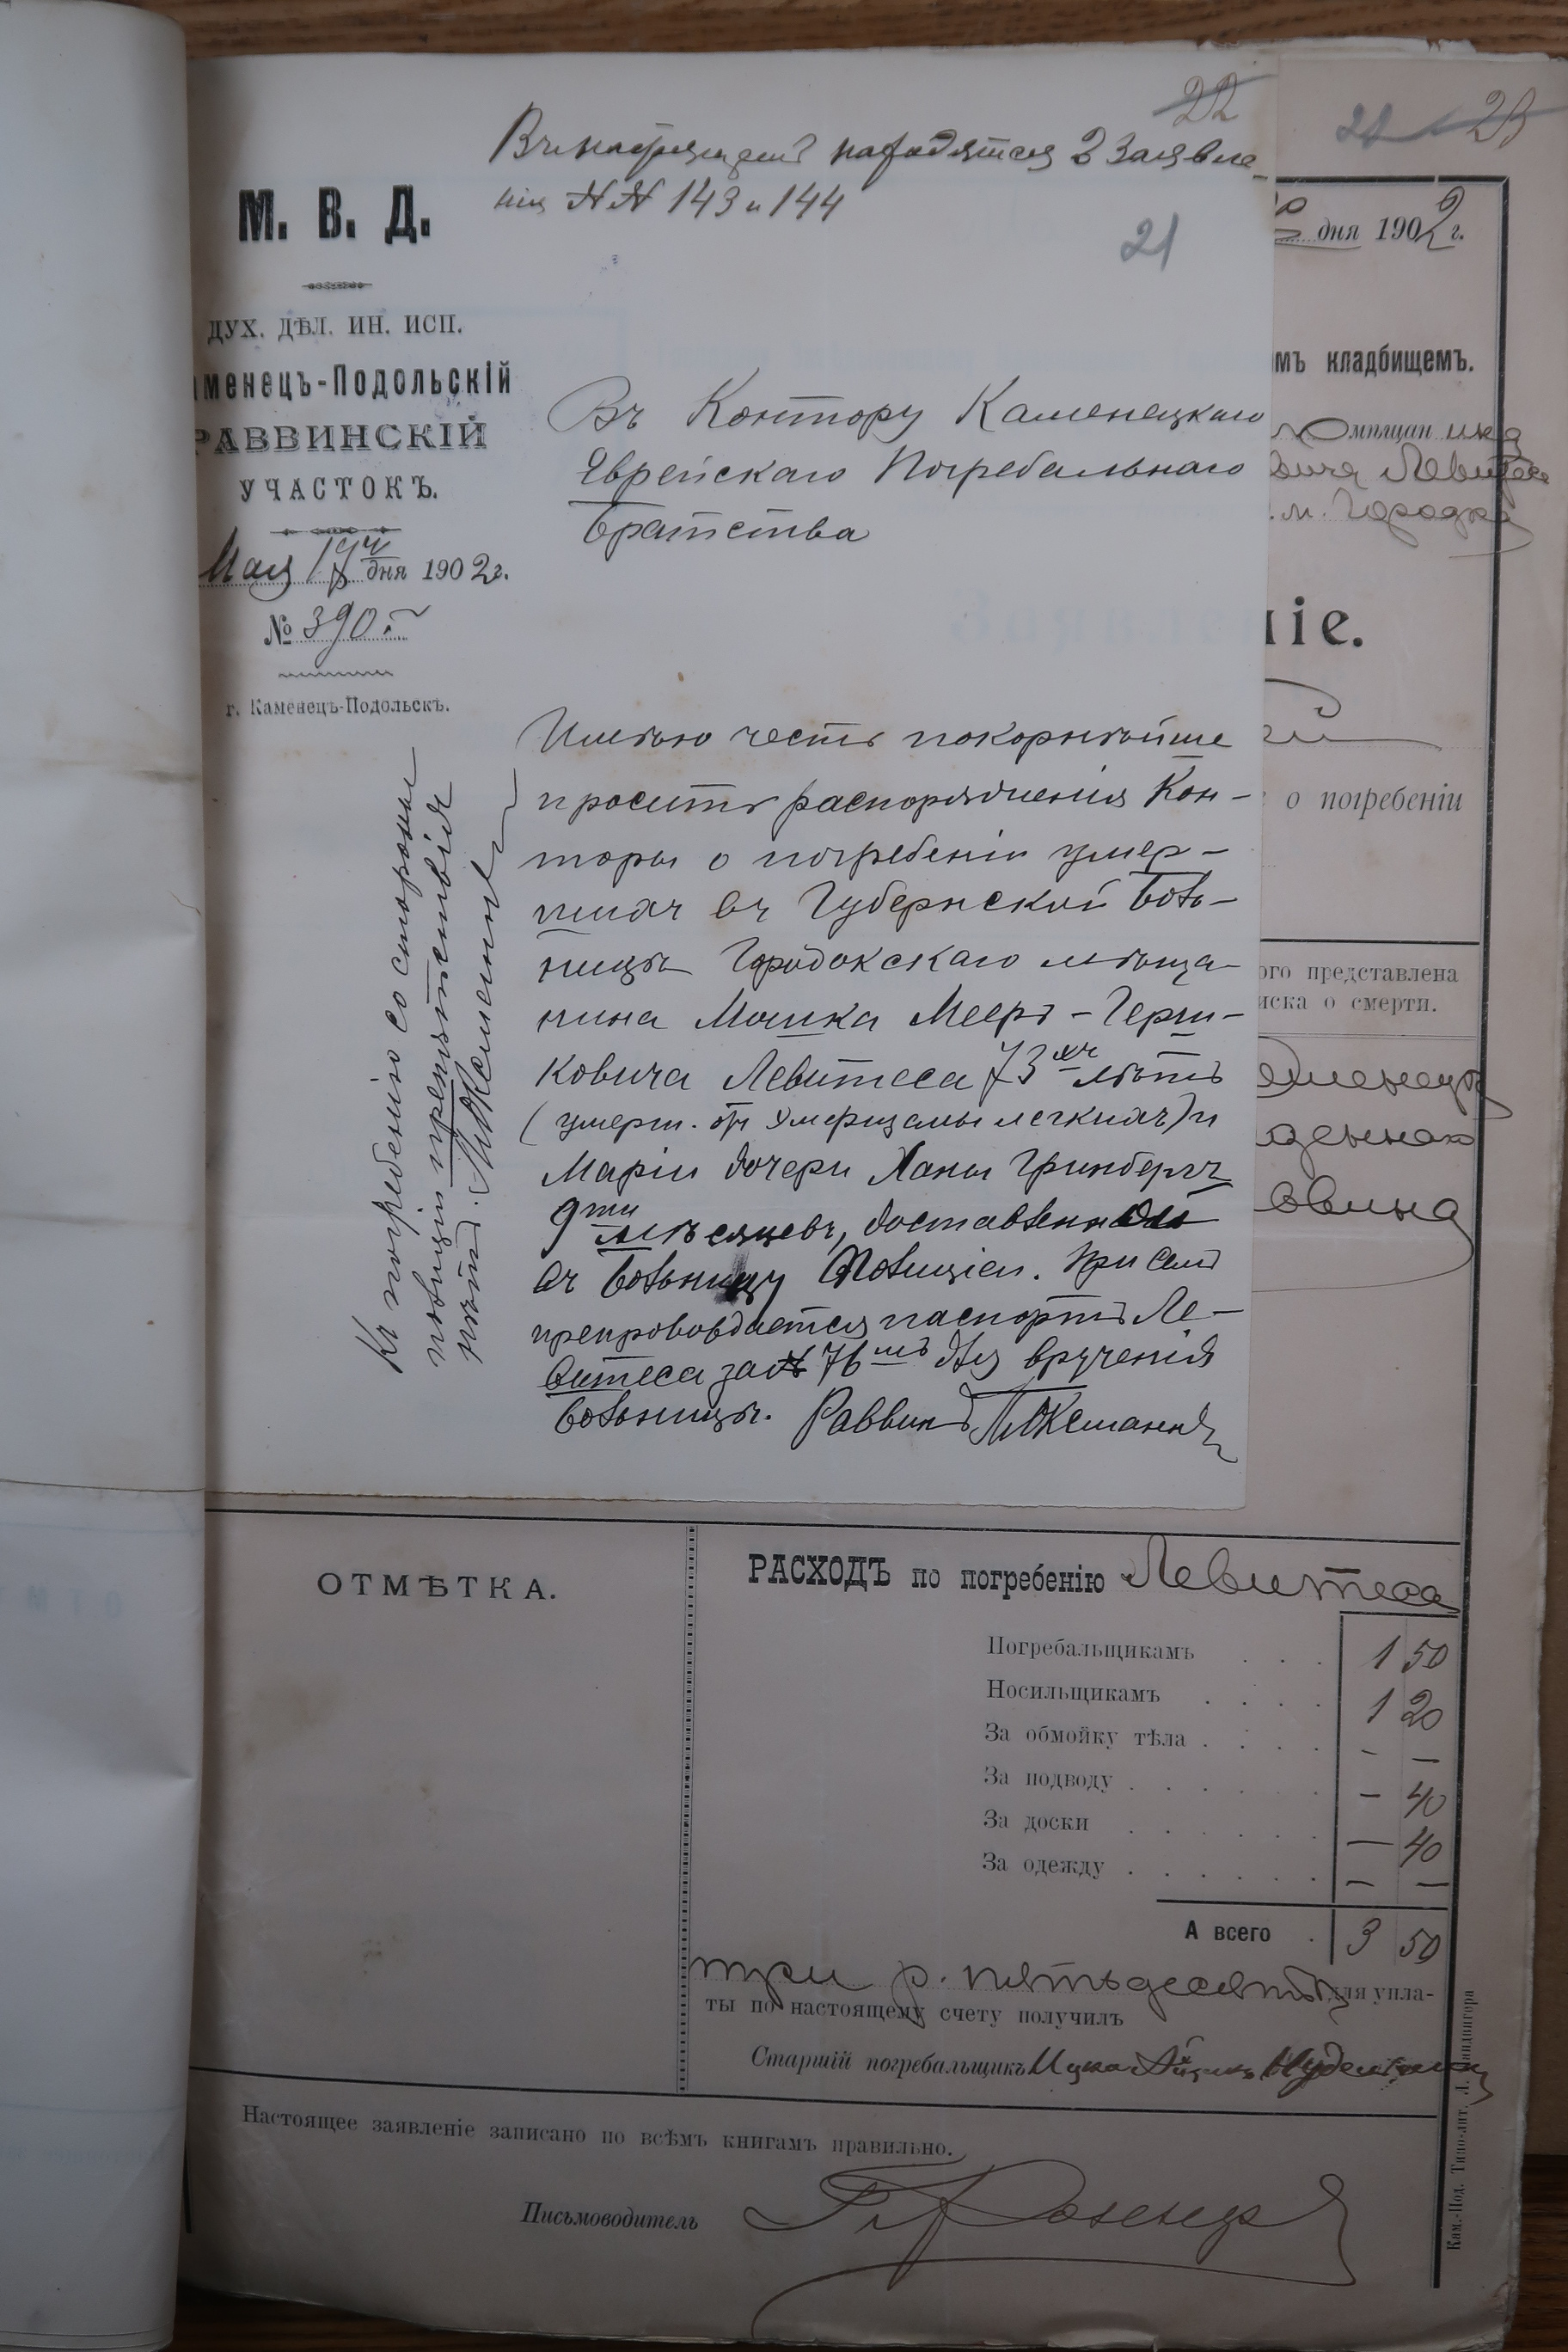 22
Въ настоящемъ находятся 2 заявле-
нія №№ 143 и 144
21
М. В. Д.
ДУХ. ДѢЛ. ИН. ИСП.
менецъ-Подольскій
РАВВИНСКІЙ
УЧАСТОКЪ.
Мая дня 1902 г.
№ 390
г. Каменецъ-Подольскъ.
Въ Контору Каменецкаго
Еврейскаго Погребальнаго
Братства
Имѣю честь покорнѣйше
просить распоряженія Кон-
торы о погребеніи умер-
шихъ въ Губернской Боль-
ницѣ Городокскаго мѣща-
нина Мошка Мееръ-Герш-
ковича Левитеса 73хъ лѣтъ
(умерш. отъ Эмфиземы легкихъ) и
Маріи дочери Ханы Гринбергъ
9ти мѣсяцевъ, доставленной
въ больницу Полиціей. При семъ
препровождается паспортъ Ле-
витеса за № 76 для врученія
больницѣ. Раввинъ
Къ погребенію со стороны
полиціи препятствія
нѣтъ.
21 23
дня 1902 г.
мъ кладбищемъ.
мѣщан ина
вича Левитеса
м. Городка
ніе.
о погребеніи
ого представлена
иска о смерти.
ОТМѢТКА.
РАСХОДЪ по погребенію Левитеса
Погребальщикамъ . . . 1 50
Носильщикамъ . . . . 1 20
За обмойку тѣла . . . . - —
За подводу . . . . . . - 40
За доски . . . . . . — 40
За одежду . . . . . . — —
А всего . 3 50
три р. пятьдесятъ для упла-
ты по настоящему счету получилъ
Старшій погребальщикъ Ицко
Настоящее заявленіе записано по всѣмъ книгамъ правильно.
Письмоводитель
Кам.-Под. Типо-лит.